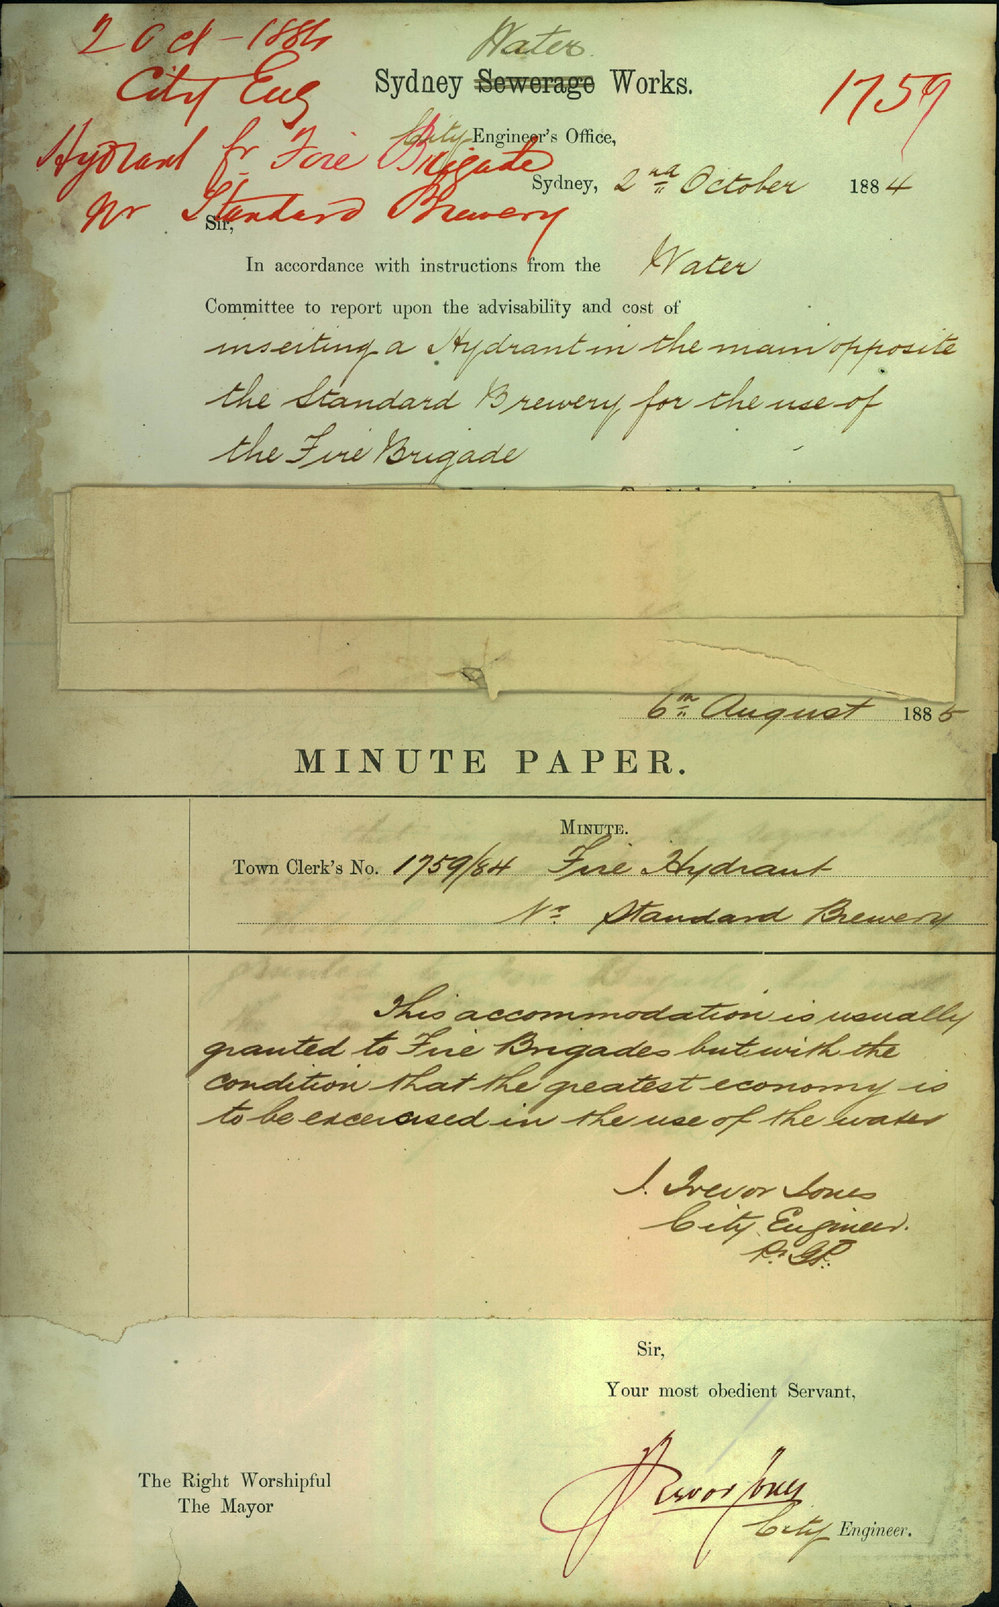 2 Oct - 1884
City Eng
Hydrant fr Fire Brigade
Nr Standard Brewery
1759
Water
Sydney Sewerage Works.
City Engineer's Office,
Sydney, 2nd October 1884
Sir,
In accordance with instructions from the Water
Committee to report upon the advisability and cost of
inserting a Hydrant in the main opposite
the Standard Brewery for the use of
the Fire Brigade
6th August 1885
MINUTE PAPER.
MINUTE.
Town Clerk's No. 1759/84 Fire Hydrant
Nr Standard Brewery
This accommodation is usually
granted to Fire Brigades but with the
condition that the greatest economy is
to be excercised in the use of the water
J. Trevor Jones
City Engineer.
Sir,
Your most obedient Servant,
The Right Worshipful
The Mayor
J Trevor Jones
City Engineer.